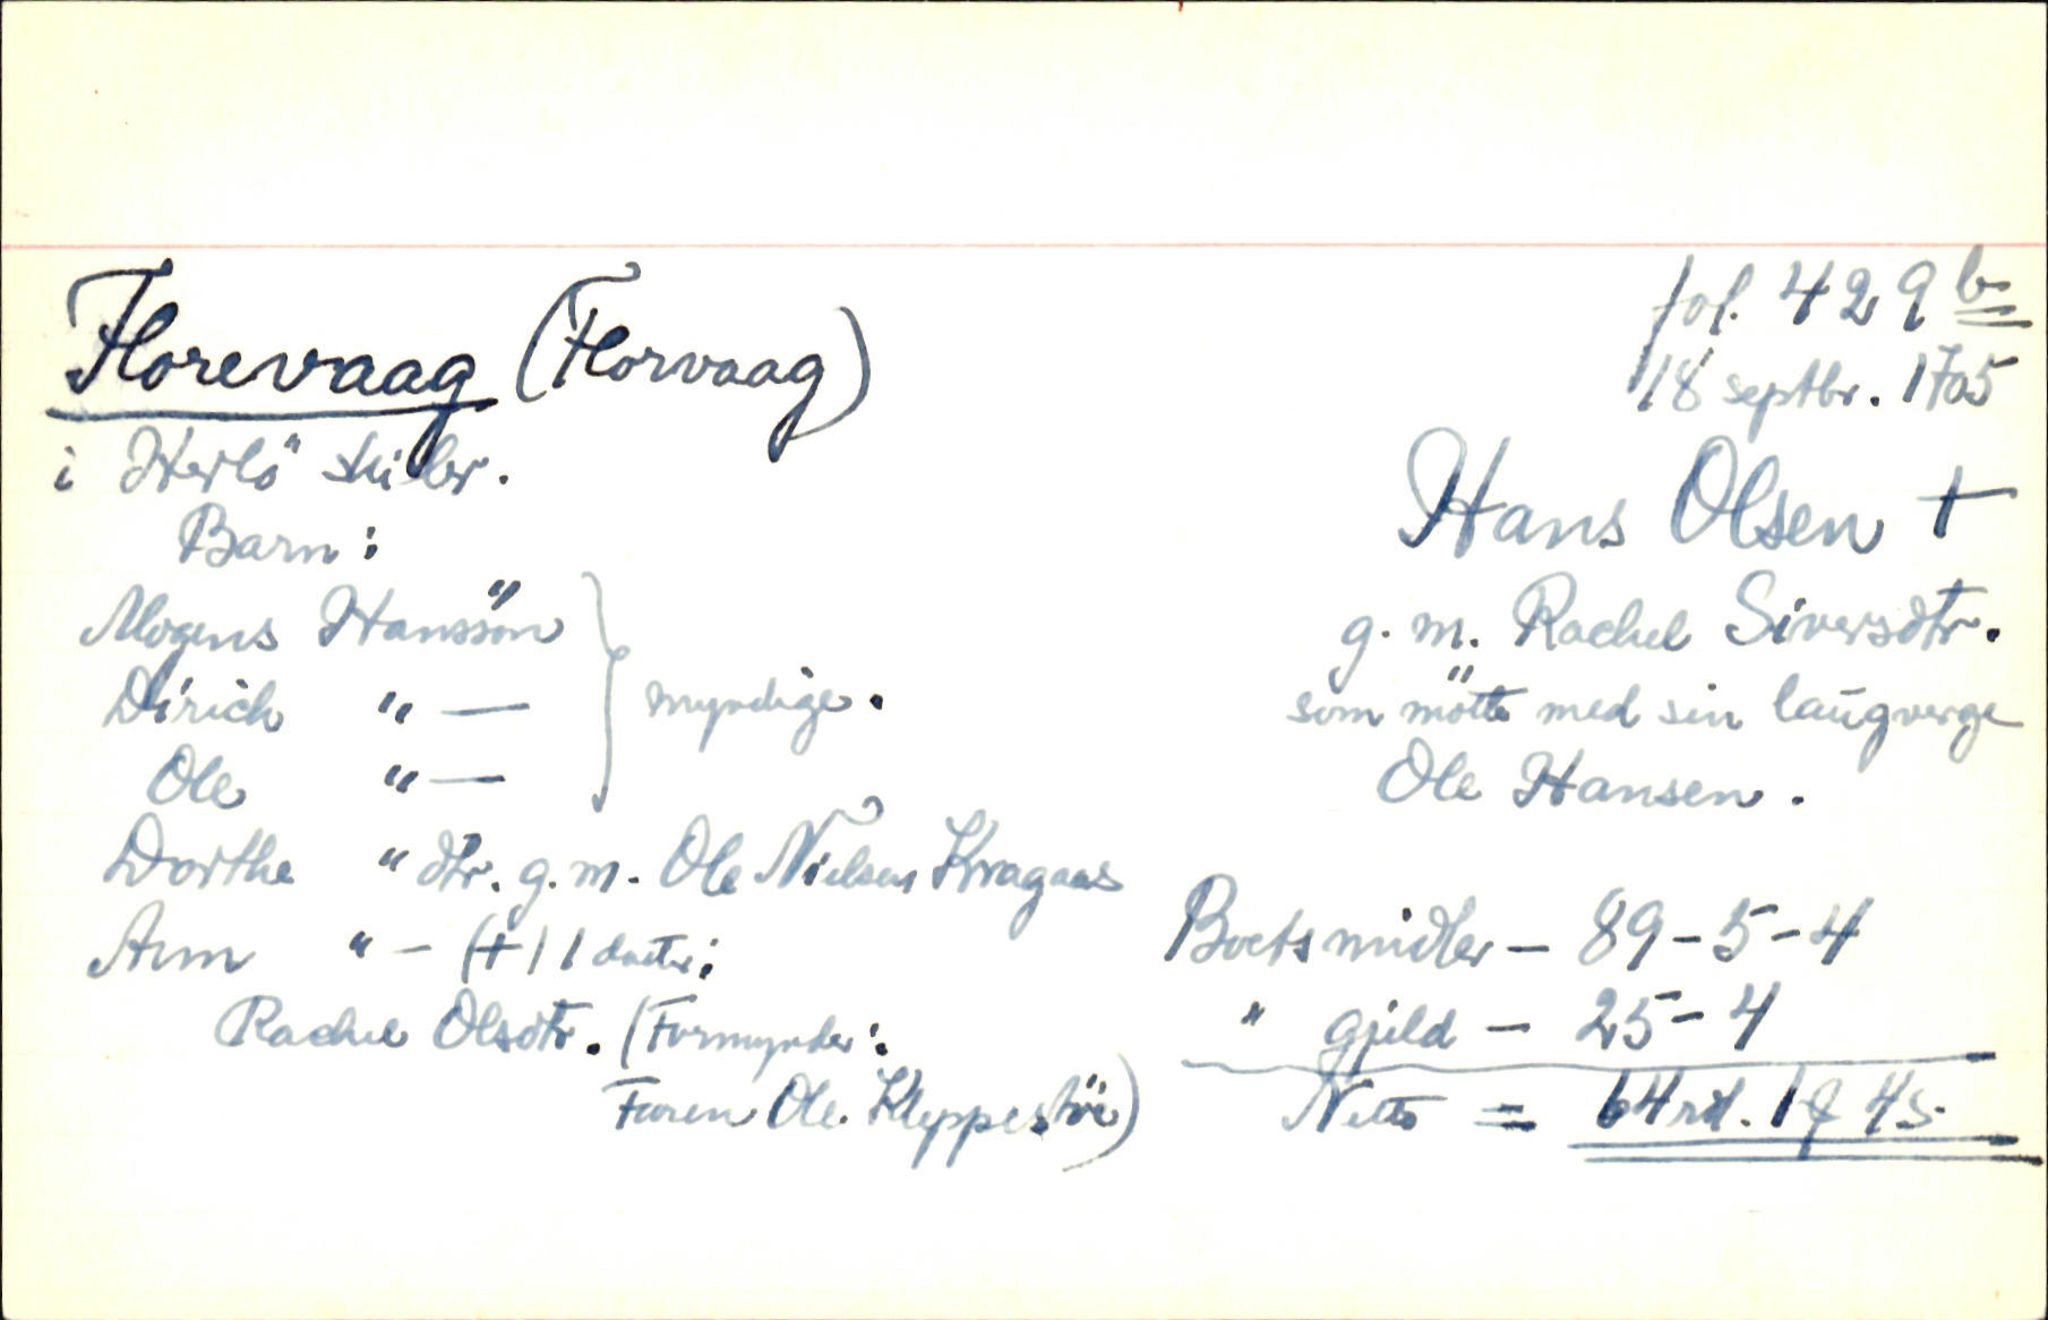 Florevaag (Florvaag)
i Herlö skibr.
Barn:
Mogens Hanssön
Dirich " —
Ole " —
} myndige.
Dorthe " dtr. g. m. Ole Nielsen Kragaas
Ann " — (+) 1 datter:
Rachel Olsdtr. (Formynder:
Faren Ole. Kleppestöe)
fol. 429 b
18 septbr. 1705
Hans Olsen +
g. m. Rachel Siversdtr.
som mötte med sin laugverge
Ole Hansen.
Boets midler — 89-5-4
" gjeld — 25-4
Netto = 64 rd. 1 4 s.